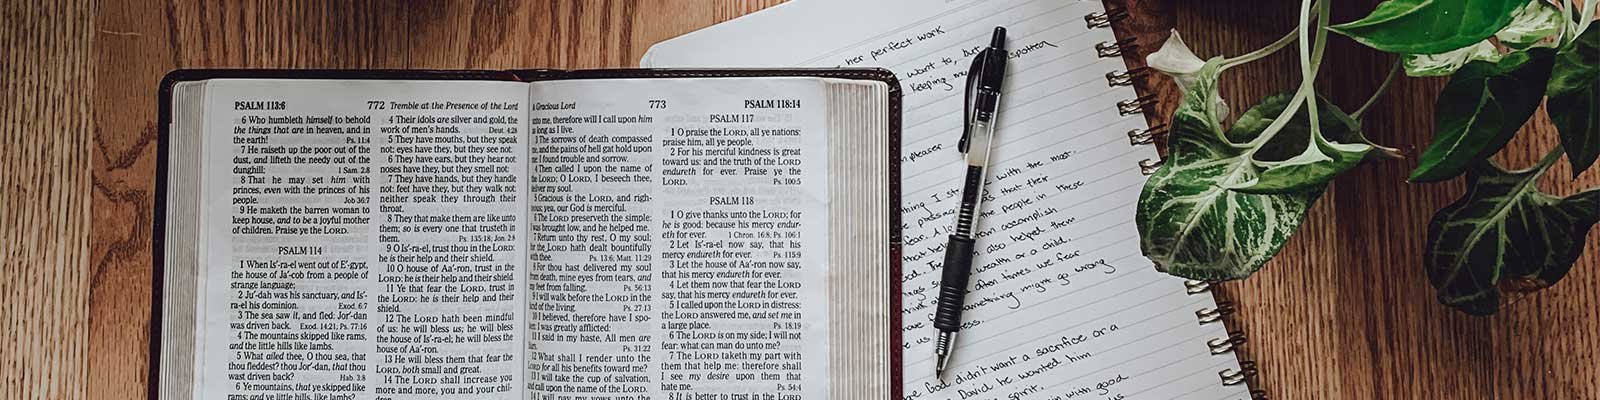 PSALM 113:6
772
Tremble at the Presence of the Lord
6 Who humbleth himself to behold
the things that are in heaven, and in
the earth!
Ps. 11:4
7 He raiseth up the poor out of the
dust, and lifteth the needy out of the
dunghill;
1 Sam. 2:8
8 That he may set him with
princes, even with the princes of his
people.
Job 36:7
9 He maketh the barren woman to
keep house, and to be a joyful mother
of children. Praise ye the LORD.
PSALM 114
1 When Is'-ra-el went out of E'-gypt,
the house of Ja'-cob from a people of
strange language;
2 Ju'-dah was his sanctuary, and Is'-
ra-el his dominion.
Exod. 6:7
3 The sea saw it, and fled: Jor'-dan
was driven back. Exod. 14:21; Ps. 77:16
4 The mountains skipped like rams,
and the little hills like lambs.
5 What ailed thee, O thou sea, that
thou fleddest? thou Jor'-dan, that thou
wast driven back?
Hab. 3:8
6 Ye mountains, that ye skipped like
rams; and ye little hills, like lambs?
4 Their idols are silver and gold, the
work of men's hands.
Deut. 4:28
5 They have mouths, but they speak
not: eyes have they, but they see not:
6 They have ears, but they hear not:
noses have they, but they smell not:
7 They have hands, but they handle
not: feet have they, but they walk not:
neither speak they through their
throat.
8 They that make them are like unto
them; so is every one that trusteth in
them.
Ps. 135:18; Jon. 2:8
9 O Is'-ra-el, trust thou in the LORD:
he is their help and their shield.
10 O house of Aa'-ron, trust in the
LORD: he is their help and their shield.
11 Ye that fear the LORD, trust in
the LORD: he is their help and their
shield.
12 The LORD hath been mindful
of us: he will bless us; he will bless
the house of Is'-ra-el; he will bless the
house of Aa'-ron.
13 He will bless them that fear the
LORD, both small and great.
14 The LORD shall increase you
more and more, you and your chil-
dren.
A Gracious Lord
773
PSALM 118:14
unto me, therefore will I call upon him
as long as I live.
3 The sorrows of death compassed
me, and the pains of hell gat hold upon
me: I found trouble and sorrow.
4 Then called I upon the name of
the LORD; O LORD, I beseech thee,
deliver my soul.
5 Gracious is the LORD, and righ-
teous; yea, our God is merciful.
6 The LORD preserveth the simple:
I was brought low, and he helped me.
7 Return unto thy rest, O my soul;
for the LORD hath dealt bountifully
with thee.
Ps. 13:6; Matt. 11:29
8 For thou hast delivered my soul
from death, mine eyes from tears, and
my feet from falling.
Ps. 56:13
9 I will walk before the LORD in the
land of the living.
Ps. 27:13
10 I believed, therefore have I spo-
ken: I was greatly afflicted:
11 I said in my haste, All men are
liars.
Ps. 31:22
12 What shall I render unto the
LORD for all his benefits toward me?
13 I will take the cup of salvation,
and call upon the name of the LORD.
14 I will pay my vows unto the
PSALM 117
1 O praise the LORD, all ye nations:
praise him, all ye people.
2 For his merciful kindness is great
toward us: and the truth of the LORD
endureth for ever. Praise ye the
LORD.
Ps. 100:5
PSALM 118
1 O give thanks unto the LORD; for
he is good: because his mercy endur-
eth for ever.
1 Chron. 16:8; Ps. 106:1
2 Let Is'-ra-el now say, that his
mercy endureth for ever.
Ps. 115:9
3 Let the house of Aa'-ron now say,
that his mercy endureth for ever.
4 Let them now that fear the LORD
say, that his mercy endureth for ever.
5 I called upon the LORD in distress:
the LORD answered me, and set me in
a large place.
Ps. 18:19
6 The LORD is on my side; I will not
fear: what can man do unto me?
7 The LORD taketh my part with
them that help me: therefore shall
I see my desire upon them that
hate me.
Ps. 54:4
8 It is better to trust in the LORD
her perfect work
want to, but spotted
keeping my
pleaser
thing I with the most.
that their
the people in these
accomplish
also helped them
wealth or a child.
often times we fear
something might go wrong
God didn't want a sacrifice or a
David he wanted him
spirit.
with good